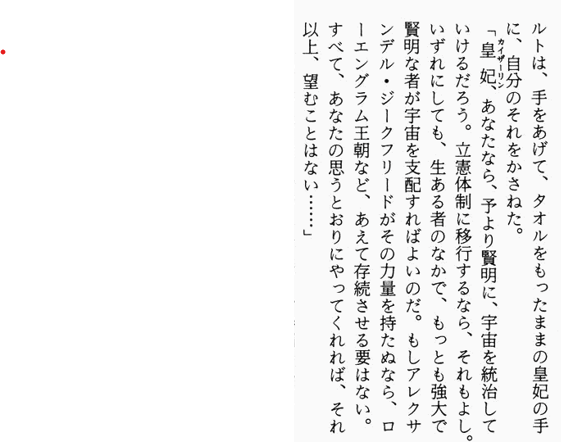 ルトは、手をあげて、タオルをもったままの皇妃の手
に、自分のそれをかさねた。
「皇妃、あなたなら、予より賢明に、宇宙を統治して
カイザーリン
いけるだろう。立憲体制に移行するなら、それもよし。
いずれにしても、生ある者のなかで、もっとも強大で
賢明な者が宇宙を支配すればよいのだ。もしアレクサ
ンデル・ジークフリードがその力量を持たぬなら、ロ
ーエングラム王朝など、あえて存続させる要はない。
すべて、あなたの思うとおりにやってくれれば、それ
以上、望むことはない……」